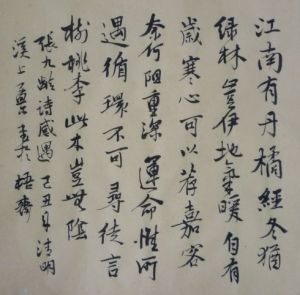 江南有丹橘經冬猶
绿林豈伊地氣暖自有
歲寒心可以荐嘉客
奈何阻重深運命惟所
遇循環不可尋徒言
树桃李此木豈無陰
張九龄诗感遇己丑年清明
溪上於梧齋